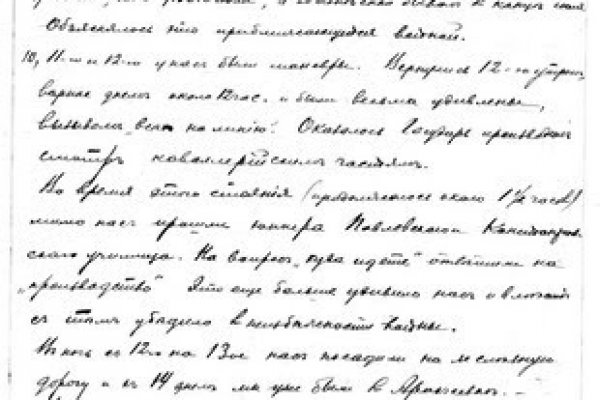 Объяснялось это приближающейся войной.
10, 11-го и 12-го у нас были маневры. Вернулись 12-го утром,
вернее днем около 12 час. и были весьма удивлены,
вызовом „всем на линию". Оказалось Государь производил
смотр кавалерийским частям.
Во время этого стояния (продолжалось около 1½ часов)
мимо нас прошли юнкера Павловского
училища. На вопрос „куда идете" ответили на
„производство" Это еще больше удивило нас и
с тем убедило в неизбежности войны.
В ночь с 12го на 13ое нас посадили на железную
дорогу и 14 днем мы уже были в